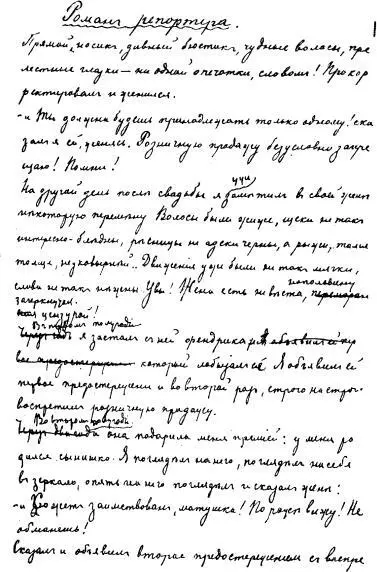 Романъ репортера.
Прямой носикъ, дивный бюстикъ, чудные волосы, пре
лестные глазки — ни одной опечатки, словомъ! Прокор
ректировалъ и женился.
— Ты должна будешь принадлежать только одному! ска
залъ я ей, женясь. Розничную продажу безусловно запре
щаю! Помни!
На другой день послѣ свадьбы я замѣтилъ въ своей женѣ
нѣкоторую перемѣну. Волосы были жиже, щеки не такъ
интересно-блѣдны, рѣсницы не адски черны, а рыжи, талія
толще,
Движенія уже были не такъ мягки,
слова не такъ нѣжны. Увы! Жена есть невѣста, на половину
зачеркнутая цензурой!
Въ первомъ полугодіи
я засталъ съ ней юнкерика
который лобызалъ ее. Я объявилъ ей
первое предостереженіе и во второй разъ, строго на строго
воспретилъ розничную продажу.
Во второмъ полугодіи
она подарила меня преміей: у меня ро
дился сынишко. Я поглядѣлъ на него, поглядѣлъ на себя
въ зеркало, опять на него поглядѣлъ и сказалъ женѣ:
— Сюжетъ заимствованъ, матушка! По рожѣ вижу! Не
обманешь!
Сказалъ и объявилъ второе предостереженіе съ воспре